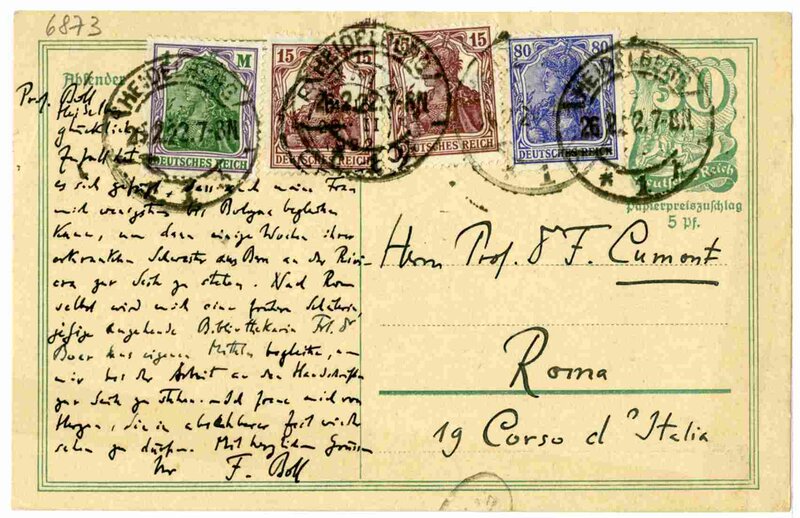 6873
Absender
Prof. Boll
Heidelb.
glücklicher
Zufall hat
es sich gefügt, dass mich meine Frau
mich wenigstens bis Bologna begleiten
kann, um dann einige Wochen ihrer
erkrankten Schwester aus Bern an der Rivi-
era zur Seite zu stehen. Nach Rom
selbst wird mich eine frühere Schülerin,
angehende Bibliothekarin Frl. Dr
Boer aus eigenen Mitteln begleiten, um
mir bei der Arbeit an den Handschriften
zur Seite zu stehen. Ich freue mich von
Herzen, Sie in absehbarer Zeit wieder
sehen zu dürfen. Mit herzlichen Grüssen
Ihr F. Boll
M
DEUTSCHES REICH
15
DEUTSCHES REICH
15
DEUTSCHES REICH
80 80
DEUTSCHES REICH
HEIDELBERG
26.2.22.7-8N
* 1
HEIDELBERG
26.2.22.7-8N
HEIDELBERG
26.2.22.7-8N
* 1
30
Deutsches Reich
Papierpreiszuschlag
5 Pf.
Herrn Prof. Dr F. Cumont
Roma
19 Corso d'Italia